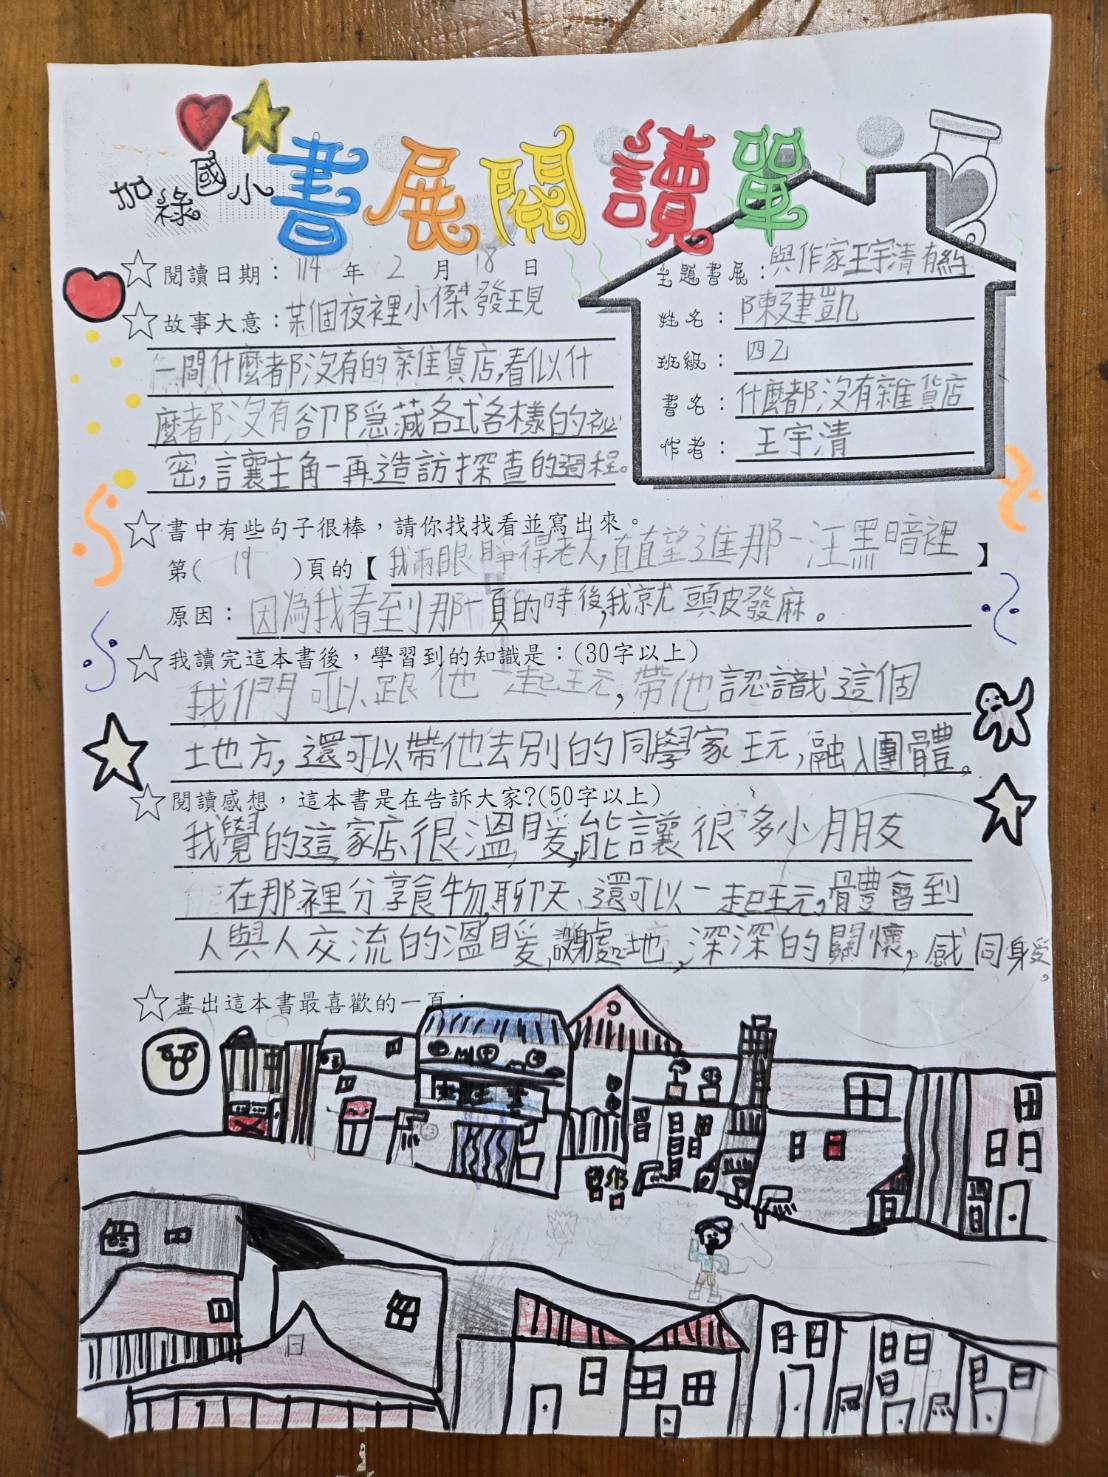 加祿國小
書展閱讀單
閱讀日期：114年2月18日
主題書展：與作家王宇清有約
姓名：陳建凱
班級：四乙
書名：什麼都沒有雜貨店
作者：王宇清
故事大意：某個夜裡小傑發現
一間什麼都沒有的雜貨店，看似什
麼都沒有卻隱藏各式各樣的祕
密，讓主角一再造訪探查的過程。
書中有些句子很棒，請你找找看並寫出來。
第(19)頁的【我兩眼睜得老大，直直望進那一汪黑暗裡】
原因：因為我看到那一頁的時後，我就頭皮發麻。
我讀完這本書後，學習到的知識是：(30字以上)
我們可以跟他一起玩，帶他認識這個
地方，還可以帶他去別的同學家玩，融入團體。
閱讀感想，這本書是在告訴大家?(50字以上)
我覺的這家店很溫暖，能讓很多小朋友
在那裡分享食物，聊天、還可以一起玩，體會到
人與人交流的溫暖，設身處地，深深的關懷，感同身受。
畫出這本書最喜歡的一頁：